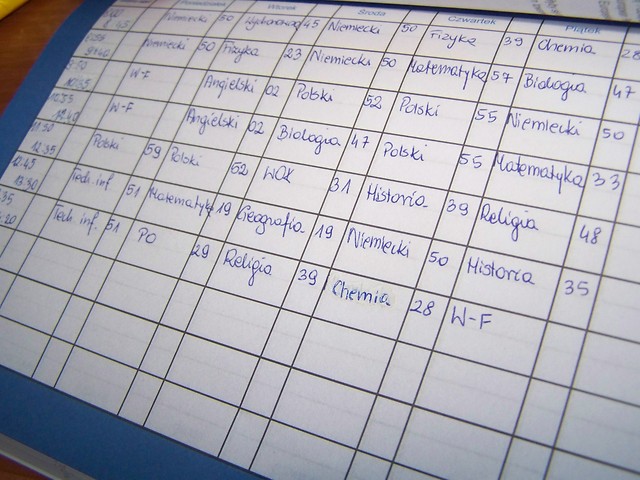 Wtorek Środa Czwartek Piątek
Niemiecki 50 45 Niemiecki 50 Fizyka 39 Chemia 28
Niemiecki 50 Fizyka 23 Niemiecki 50 Matematyka 57 Biologia 47
W-F Angielski 02 Polski 52 Polski 55 Niemiecki 50
W-F Angielski 02 Biologia 47 Polski 55 Matematyka 33
12.35 Polski 59 Polski 52 WOK 31 Historia 39 Religia 48
12.45 13.30 Tech. inf. 51 Matematyka 19 Geografia 19 Niemiecki 50 Historia 35
Tech. inf. 51 PO 29 Religia 39 Chemia 28 W-F